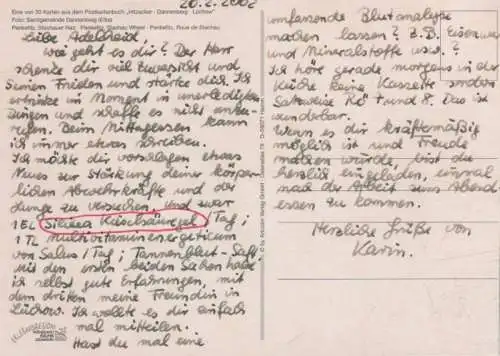 20.2.2002
Eine von 30 Karten aus dem Postkartenbuch „Hitzacker · Dannenberg · Lüchow“
Foto: Samtgemeinde Dannenberg (Elbe)
Penkefitz, Stachauer Rad · Penkefitz, Stachau Wheel · Penkefitz, Roue de Stachau
Liebe Adelheid,
wie geht es dir? Der Herr
schenke dir viel Zuversicht und
Seinen Frieden und stärke dich. Ich
ertrinke im Moment in unerledigten
Dingen und schaffe es nicht anzu-
rufen. Beim Mittagessen kann
ich immer etwas schreiben.
Ich möchte dir vorschlagen, etwas
Neues zur Stärkung deiner körper-
lichen Abwehrkräfte und der
Lunge zu versuchen, und zwar
1 EL Silicea Kieselsäuregel / Tag;
1 TL Multivitaminenergeticum
von Salus / Tag; Tannenblut-Saft.
Mit den ersten beiden Sachen habe
ich selbst gute Erfahrungen, mit
dem dritten meine Freundin in
Lüchow. Ich wollte es dir einfach
mal mitteilen.
Hast du mal eine
umfassende Blutanalyse
machen lassen? z.B. Eisenwert
und Mineralstoffe usw.?
Ich höre gerade morgens in der
Küche eine Kassette
Rö 7 und 8. Das ist
wunderbar.
Wenn es dir kräftemäßig
möglich ist und Freude
machen würde, bist du
herzlich eingeladen, einmal
nach der Arbeit zum Abend-
essen zu kommen.
Herzliche Grüße von
Karin.